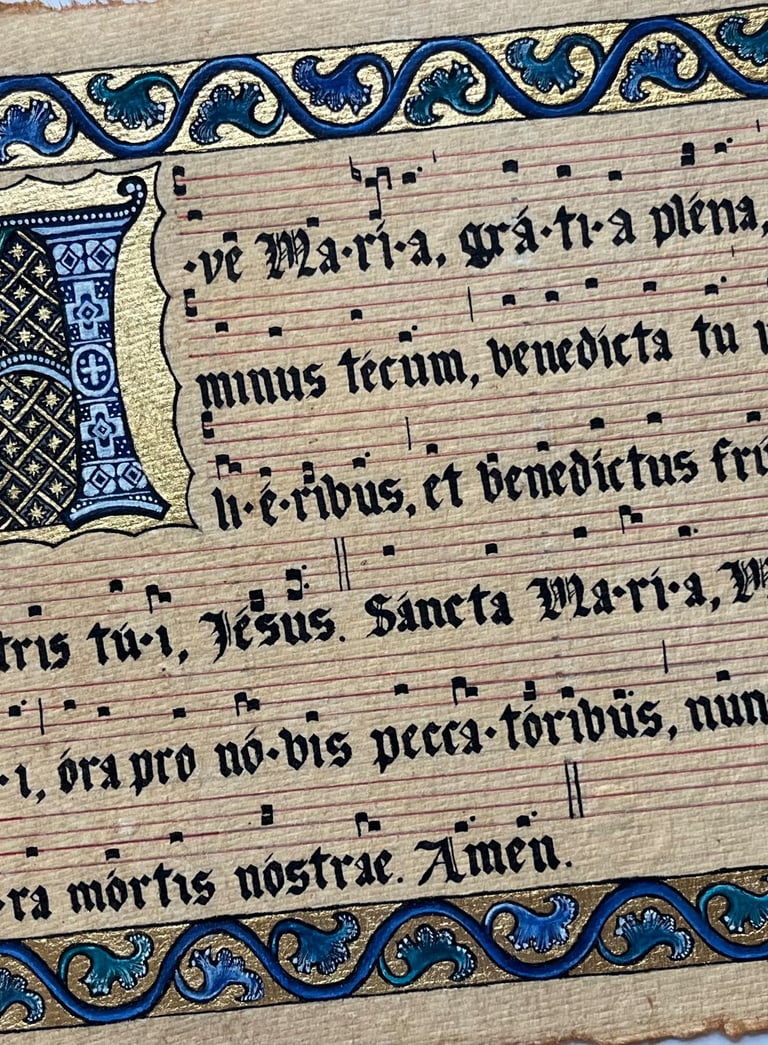 A·vé Ma·rí·a, grá·ti·a pléna,
minus técum, benedícta tu
li·é·ribus, et benedíctus frú
tris tú·i, Jésus. Sáncta Ma·rí·a, M
·i, óra pro nó·bis pecca·tóribus, nun
·ra mórtis nóstrae. Amen.